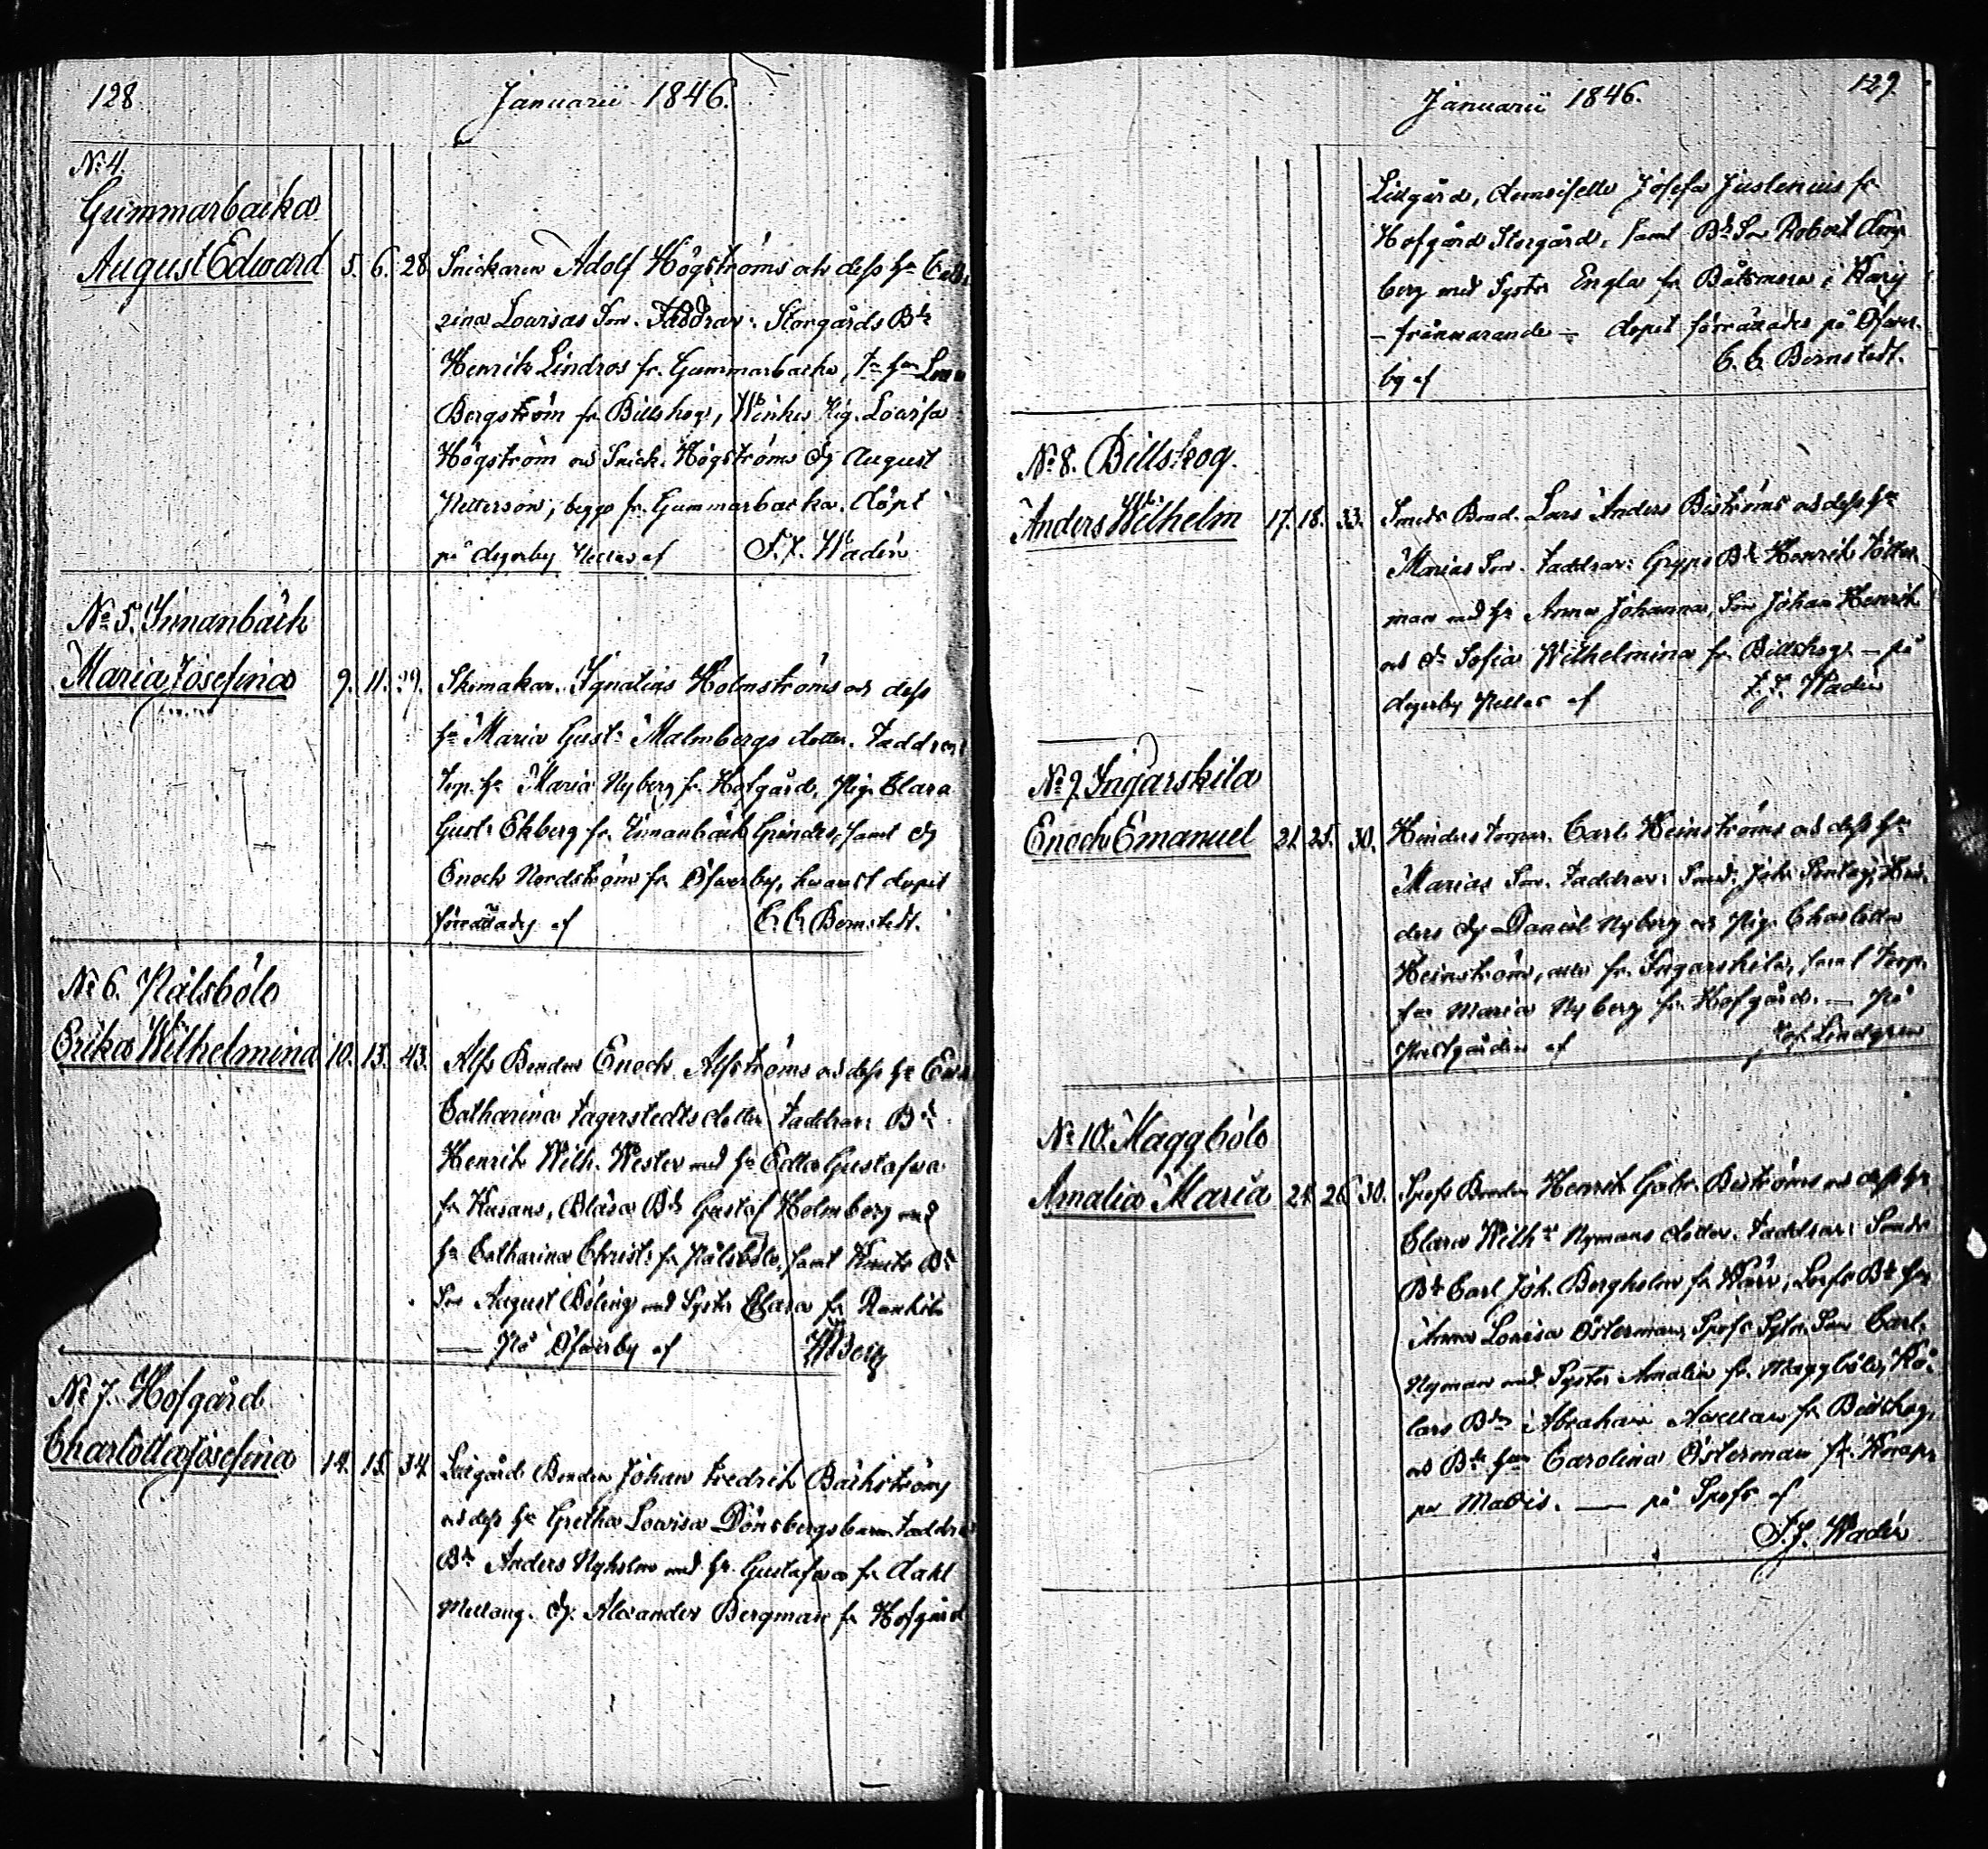 128 Januarii 1846.
No 4.
Gummarbacka
August Edward 5. 6. 28. Snickaren Adolf Högströms och dess hu
Lovisas Son. Faddrar: Storgårds Bde
Henrik Lindros fr. Gummarbacka,
Bergström fr Billskog, Pig. Lovisa
Högström och Snick. Högströms Dg August
Petterson, begge fr. Gummarbacka. Döpt
på Degerby af F. F. Wadén
No 5. Innanbäck
Maria Josefina 9. 11. 29. Skomakar. Ignatius Holmströms och dess
hu Maria Gust: Malmbergs dotter. Faddrar
Torp. hu Maria Nyberg fr. Hofgård, Pig. Clara
Gust: Ekberg fr. Innanbäck Grindas, samt Dg
Enoch Nordström fr Ofverby, hvarest dopet
förrättades af C. E. Bernstedt.
No 6. Pålsböle
Erika Wilhelmina 10. 13. 43. Alfs Bonden Enoch Alfströms och dess hu
Catharina Fagerstedts dotter. Faddrar: Bd
Henrik Wilh. Wester med hu Edla Gustafva
fr Kusans, Blåsa Bd Gustaf Holmberg med
hu Catharina Christ: fr Pålsböle, samt Knuts Bd
Son August Böling med Syster Clara fr
— På Ofverby af
No 7. Hofgård
Charlotta Josefina 14. 15. 34. Lillgårds Bonden Johan Fredrik Bäckströms
och dess hu Gretha Lovisa Dönsbergs barn. Faddrar
Bd Anders Nyholm med hu Gustafva fr Dahl
Mellang. Dg. Alexander Bergman fr Hofgård
Januarii 1846. 129
Lillgård, Demoiselle Josefa Juslenius fr
Hofgård Storgård, samt Bd Son Robert
berg med Syster Engla fr Båtsmera i Karis
– frånvarande – dopet förrättades på Ofver-
by af C. E. Bernstedt.
No 8. Billskog.
Anders Wilhelm 17. 18. 33. Smeds Bond. Lars Anders Biströms och dess hu
Marias Son. Faddrar: Gryps Bd Henrik
man med hu Anna Johanna, Son Johan Henrik
och Dr Sofia Wilhelmina fr Billskog – på
Degerby af F. F. Wadén
No 9. Ingarskila
Enoch Emanuel 21. 25. 30. Hinders torpar. Carl Heinströms och dess hu
Marias Son. Faddrar: Joh. Sontag, Hin-
ders Dg Daniel Nyberg och Pig. Charlotta
Heinström, alla fr. Ingarskila, samt Torp.
hu Maria Nyberg fr. Hofgård. — På
Prestgården af Lindgren
No 10. Maggböle
Amalia Maria 24. 26. 30. Spofs Bonden Henrik Gabr. Biströms och dess hu
Clara Wilh:a Nymans dotter. Faddrar:
Bd Carl Joh. Bergholm fr Bd hu
Anna Lovisa Österman, Spofs Son Carl
Nyman med Syster Amalia fr. Maggböle,
lars Bd Abraham fr Billskog,
och Bd hu Carolina Österman fr.
— på Spofs af
F. F. Wadén